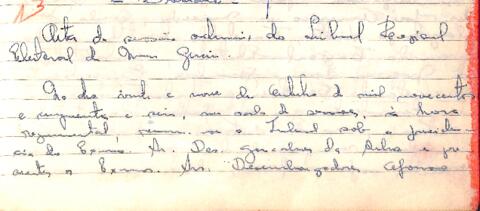 13
Acta da sessão ordinaria do Tribunal Regional
Eleitoral de Minas Gerais.
No dia vinte e nove de outubro de mil novecentos
e cinquenta e seis, na sala de sessões, à hora
regimental, reuniu-se o Tribunal sob a presiden-
cia do Exmo. Sr. Des. Gonçalves da Silva e pre
sentes os Exmos. Srs. Desembargadores Afonso